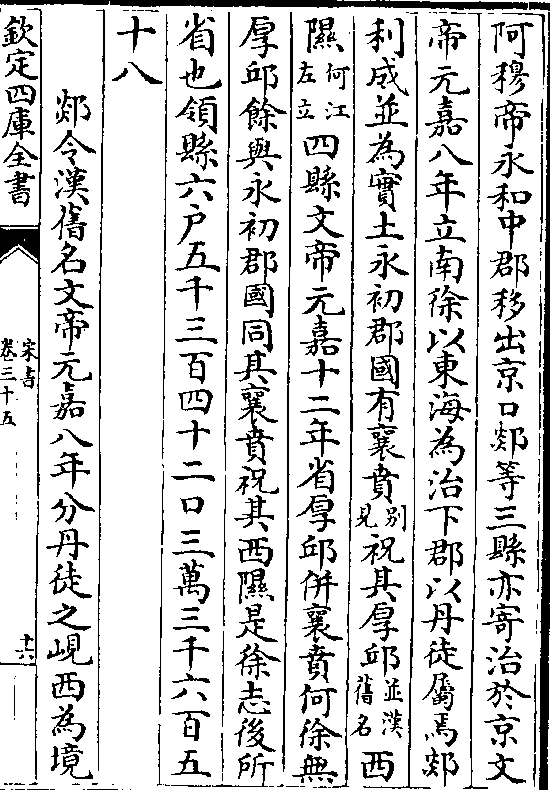 阿穆帝永和中郡移出京口郯等三縣亦寄治於京文
帝元嘉八年立南徐以東海為治下郡以丹徒屬焉郯
利成並為實土永初郡國有襄賁別見祝其厚邱並漢舊名西
隰何江左立四縣文帝元嘉十二年省厚邱併襄賁何徐無
厚邱餘與永初郡國同其襄賁祝其西隰是徐志後所
省也領縣六户五千三百四十二口三萬三千六百五
十八
郯令漢舊名文帝元嘉八年分丹徒之峴西為境
欽定四庫全書
宋書
卷三十五
十六